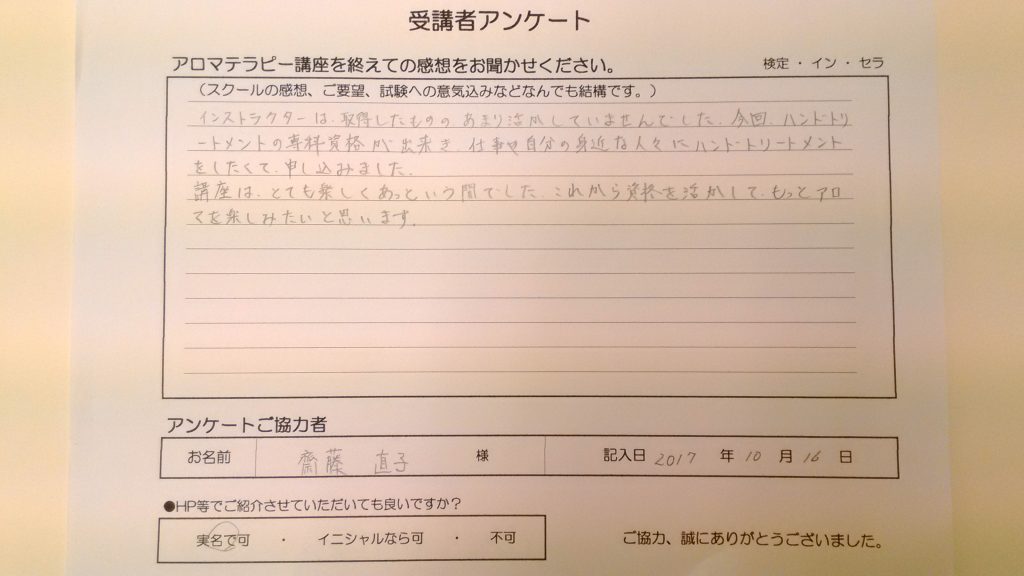 受講者アンケート
アロマテラピー講座を終えての感想をお聞かせください。 検定 ・ イン ・ セラ
（スクールの感想、ご要望、試験への意気込みなどなんでも結構です。）
インストラクターは、取得したものの あまり活かしていませんでした。今回、ハンドトリ
ートメントの専科資格が出来き、仕事や自分の身近な人々にハンドトリートメント
をしたくて、申し込みました。
講座は、とても楽しくあっという間でした。これから資格を活かして、もっとアロ
マを楽しみたいと思います。
アンケートご協力者
お名前 齋藤 直子 様 記入日 2017 年 10 月 16 日
●HP等でご紹介させていただいても良いですか？
実名で可 ・ イニシャルなら可 ・ 不可 ご協力、誠にありがとうございました。